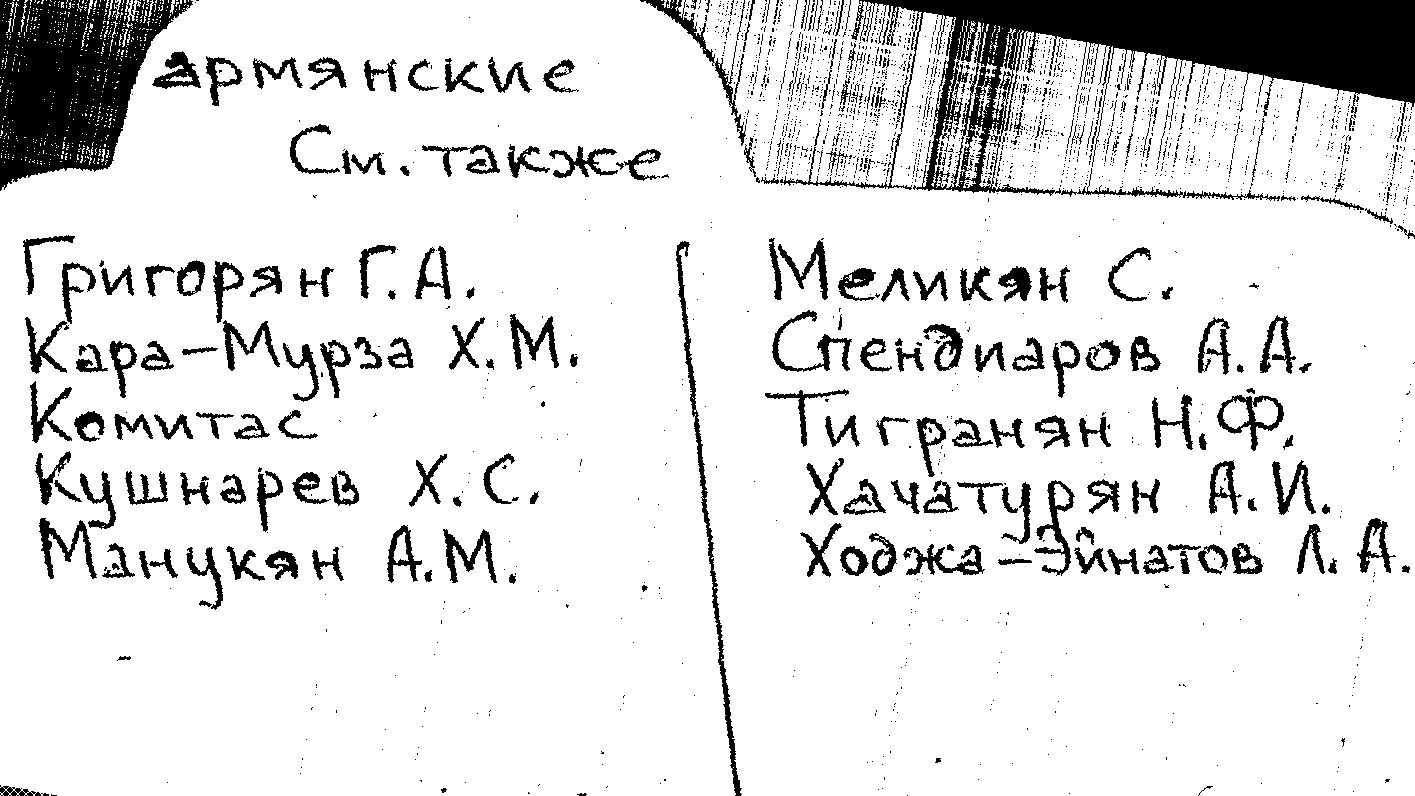 армянские
См. также
Григорян Г. А.
Кара-Мурза Х. М.
Комитас
Кушнарев Х. С.
Манукян А. М.
Меликян С.
Спендиаров А. А.
Тигранян Н. Ф.
Хачатурян А. И.
Ходжа-Эйнатов Л. А.